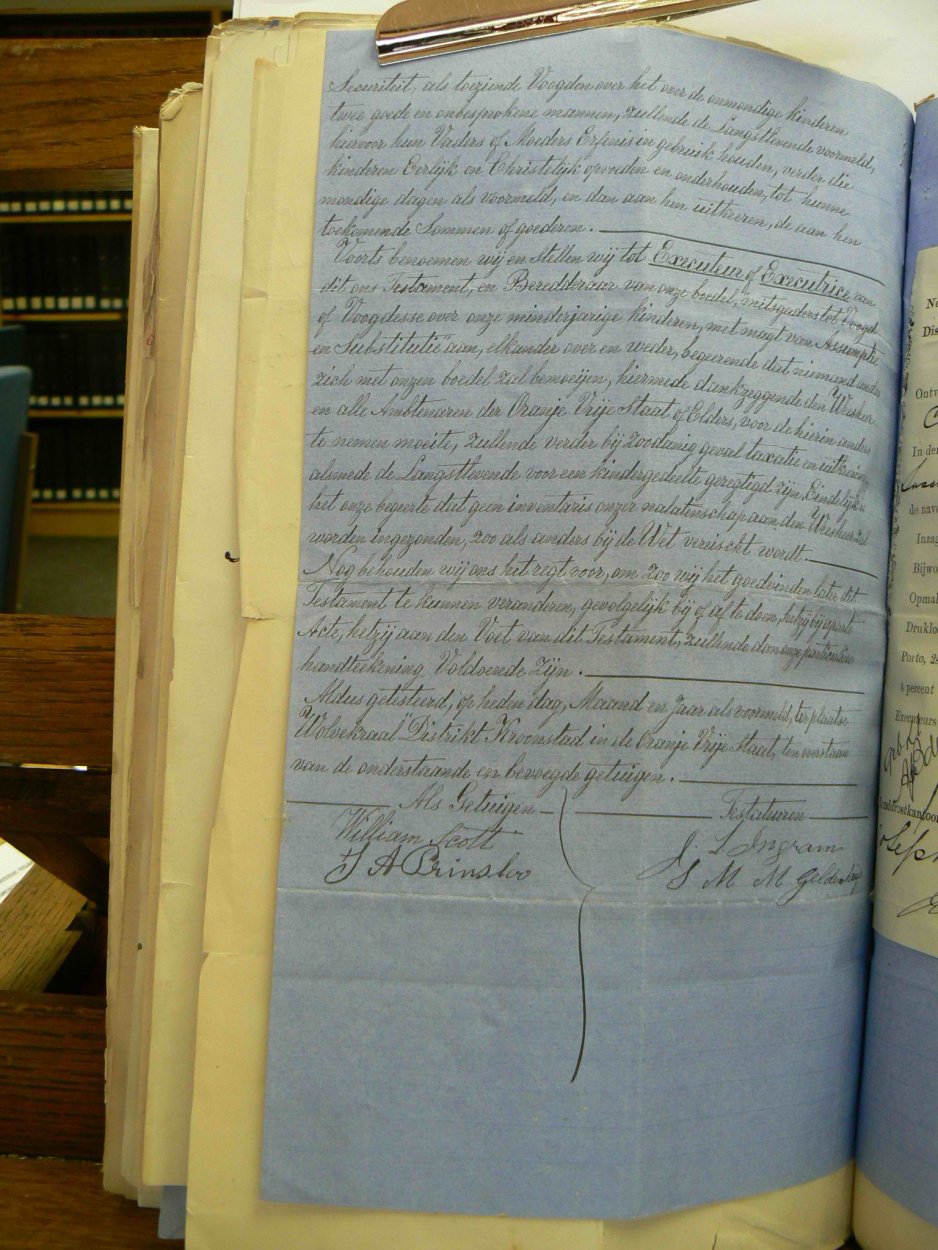 Securiteit, als toeziende Voogden over het over de onmondige kinderen
twee goede en onbesprokene mannen, zullende de Langstlevende voormeld,
hiervoor hun Vaders of Moeders Erfenis in gebruik houden, verder die
kinderen Eerlijk en Christelijk opvoeden en onderhouden, tot hunne
mondige dagen als voormeld, en dan aan hen uitkeeren, de aan hen
toekomende Sommen of goederen.
Voorts benoemen wij en Stellen wij tot Executeur of Executrice van
dit ons Testament, en Beredderaar van onze boedel, mitsgaders tot Voogd
of Voogdesse over onze minderjarige kinderen, met magt van Assumptie
en Substitutie aan, elkander over en weder, begeerende dat niemand anders
zich met onzen boedel zal bemoeijen, hiermede dankzeggende den Weesheer
en alle Ambtenaren der Oranje Vrije Staat of Elders, voor de hierin anders
te nemen moeite, zullende verder bij zoodanig geval taxatie en uitkeering
alsmede de Langstlevende voor een kindergedeelte geregtigd zijn, Eindelijk is
het onze begeerte dat geen inventaris onzer nalatenschap aan den Weesheer zal
worden ingezonden, zoo als anders bij de Wet vereischt wordt.
Nog behouden wij ons het regt voor, om zoo wij het goedvinden later dit
Testament te kunnen veranderen, gevolgelijk bij of af te doen, hetzij bij aparte
Acte, hetzij aan den Voet van dit Testament, zullende dan onze particuliere
handteekening Voldoende Zijn.
Aldus getesteerd, op heden dag, Maand en Jaar als voormeld, ter plaatse
"Wolvekraal" Distrikt Kroonstad in de Oranje Vrije Staat, ten overstaan
van de onderstaande en bevoegde getuigen.
Als Getuigen Testateuren
William Scott J. L Ingram
A Prinsloo S M M Gelden
No
Dis
Ontv
In der
de nave
Inzag
Bijwo
Opmal
Druklo
Porto, 2
4 percent
Executeurs
ddrostkantoor
Sep